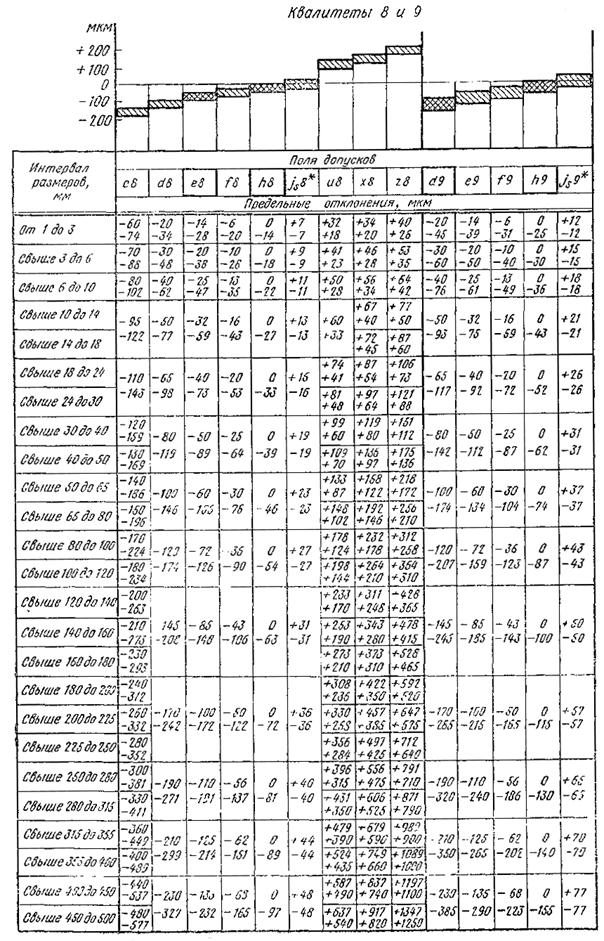 Квалитеты 8 и 9
мкм
+200
+100
0
-100
-200
Интервал размеров, мм
Поля допусков
c8 d8 e8 f8 h8 js8* u8 x8 z8 d9 e9 f9 h9 js9*
Предельные отклонения, мкм
От 1 до 3
-60 -20 -14 -6 0 +7 +32 +34 +40 -20 -14 -6 0 +12
-74 -34 -28 -20 -14 -7 +18 +20 +26 -45 -39 -31 -25 -12
Свыше 3 до 6
-70 -30 -20 -10 0 +9 +41 +46 +53 -30 -20 -10 0 +15
-88 -48 -38 -28 -18 -9 +23 +28 +35 -60 -50 -40 -30 -15
Свыше 6 до 10
-80 -40 -25 -13 0 +11 +50 +56 +64 -40 -25 -13 0 +18
-102 -62 -47 -35 -22 -11 +28 +34 +42 -76 -61 -49 -36 -18
Свыше 10 до 14
+67 +77
-95 -50 -32 -16 0 +13 +60 +40 +50 -50 -32 -16 0 +21
Свыше 14 до 18
-122 -77 -59 -43 -27 -13 +33 +72 +87 -93 -75 -59 -43 -21
+45 +60
Свыше 18 до 24
+74 +87 +106
-110 -65 -40 -20 0 +16 +41 +54 +73 -65 -40 -20 0 +26
Свыше 24 до 30
-143 -98 -73 -53 -33 -16 +81 +97 +121 -117 -92 -72 -52 -26
+48 +64 +88
Свыше 30 до 40
-120 +99 +119 +151
-159 -80 -50 -25 0 +19 +60 +80 +112 -80 -50 -25 0 +31
Свыше 40 до 50
-130 -119 -89 -64 -39 -19 +109 +136 +175 -142 -112 -87 -62 -31
-169 +70 +97 +136
Свыше 50 до 65
-140 +133 +168 +218
-186 -100 -60 -30 0 +23 +87 +122 +172 -100 -60 -30 0 +37
Свыше 65 до 80
-150 -146 -76 -46 -23 +148 +192 +256 -174 -134 -104 -74 -37
-196 +102 +146 +210
Свыше 80 до 100
-170 +178 +232 +312
-224 -120 -72 -36 0 +27 +124 +178 +258 -120 -72 -36 0 +43
Свыше 100 до 120
-180 -174 -126 -90 -54 -27 +198 +264 +364 -207 -159 -123 -87 -43
-234 +144 +210 +310
Свыше 120 до 140
-200 +233 +311 +428
-263 +170 +248 +365
Свыше 140 до 160
-210 145 -85 -43 0 +31 +253 +343 +478 -145 -85 -43 0 +50
-208 -148 -106 -63 -31 +190 +280 +415 -245 -185 -143 -100 -50
Свыше 160 до 180
-230 +273 +373 +528
-293 +210 +310 +465
Свыше 180 до 200
-240 +308 +422 +592
-312 +236 +350 +520
Свыше 200 до 225
-260 -170 -100 -50 0 +36 +330 +457 +647 -170 -100 -50 0 +57
-332 -242 -172 -122 -72 -36 +385 +575 -285 -215 -165 -115 -57
Свыше 225 до 250
-280 +356 +497 +712
-352 +284 +425 +640
Свыше 250 до 280
-300 +396 +556 +791
-381 -190 -110 -56 0 +40 +315 +475 +710 -190 -110 -56 0 +65
Свыше 280 до 315
-330 -271 -191 -137 -81 -40 +431 +606 +871 -320 -240 -186 -130 -65
-411 +350 +525 +790
Свыше 315 до 355
-360 +479 +679 +989
-449 -210 -125 -62 0 +44 +390 +590 +900 -210 -125 -62 0 +70
Свыше 355 до 400
-400 -299 -214 -151 -89 -44 +524 +749 +1089 -350 -265 -202 -140 -70
-489 +435 +660 +1000
Свыше 400 до 450
-440 +587 +837 +1197
-537 -230 -135 -68 0 +48 +490 +740 +1100 -230 -135 -68 0 +77
Свыше 450 до 500
-480 -327 -232 -165 -97 -48 +637 +917 +1347 -385 -290 -223 -155 -77
-577 +540 +820 +1250